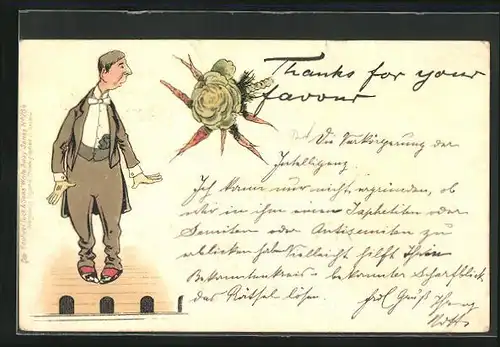 Thanks for your
favour
Die Verkörperung der
Intelligenz
Ich kann nur nicht ergründen, ob
wir in ihm einen Japhetiten oder
Semiten oder Antisemiten zu
erblicken haben. Vielleicht hilft Ihr in
Bekanntenkreis bekannter Scharfblick
das Rätsel lösen. Gruß